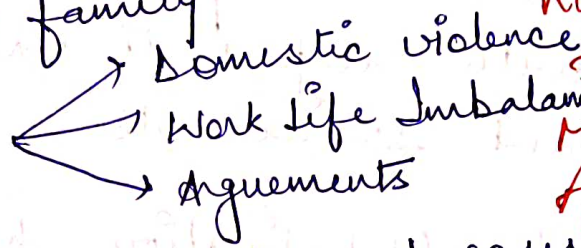 family
Domestic violence
Work Life Imbalan
Arguements